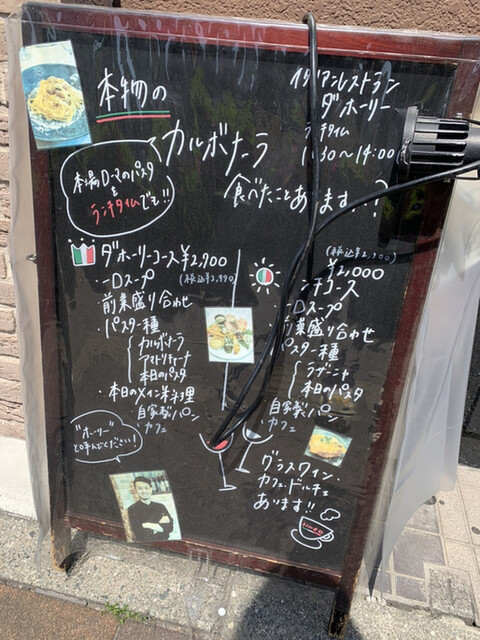 本物の
カルボナーラ
食べたことあります?
イタリアンレストラン
ダホーリー
チタイム
30〜14:00
本場ローマのパスタ
を
ランチタイムでも!!
ダホーリーコース¥2,700
(税込¥2,970)
一口スープ
前菜盛り合わせ
・パスタ一種
カルボナーラ
アマトリチャーナ
本日のパスタ
・本日のメイン料理
自家製パン
カフェ
"ホーリー"
と呼んでください!
¥2,000
ンチコース
一口スープ
前菜盛り合わせ
パスタ一種
ラザニャ
本日のパスタ
自家製パン
・カフェ
グラスワイン・
カフェ・ドルチェ
あります!!